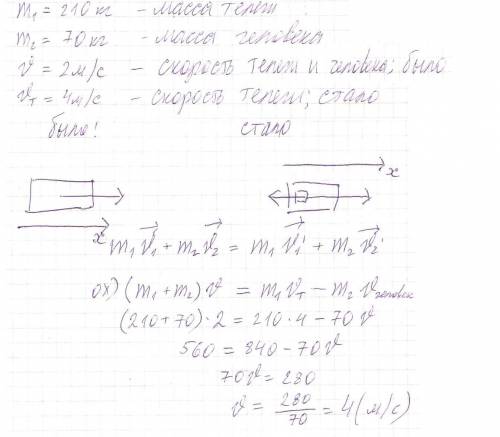 m₁ = 210 кг - масса телеги
m₂ = 70 кг - масса человека
v = 2 м/с - скорость телеги и человека; было
vт = 4 м/с - скорость телеги; стало
было! стало
x
x
m₁v₁ + m₂v₂ = m₁v₁' + m₂v₂'
ох) (m₁ + m₂) v = m₁vт - m₂ v человек
(210 + 70) · 2 = 210 · 4 - 70v
560 = 840 - 70v
70v = 280
v = 280/70 = 4 (м/с)